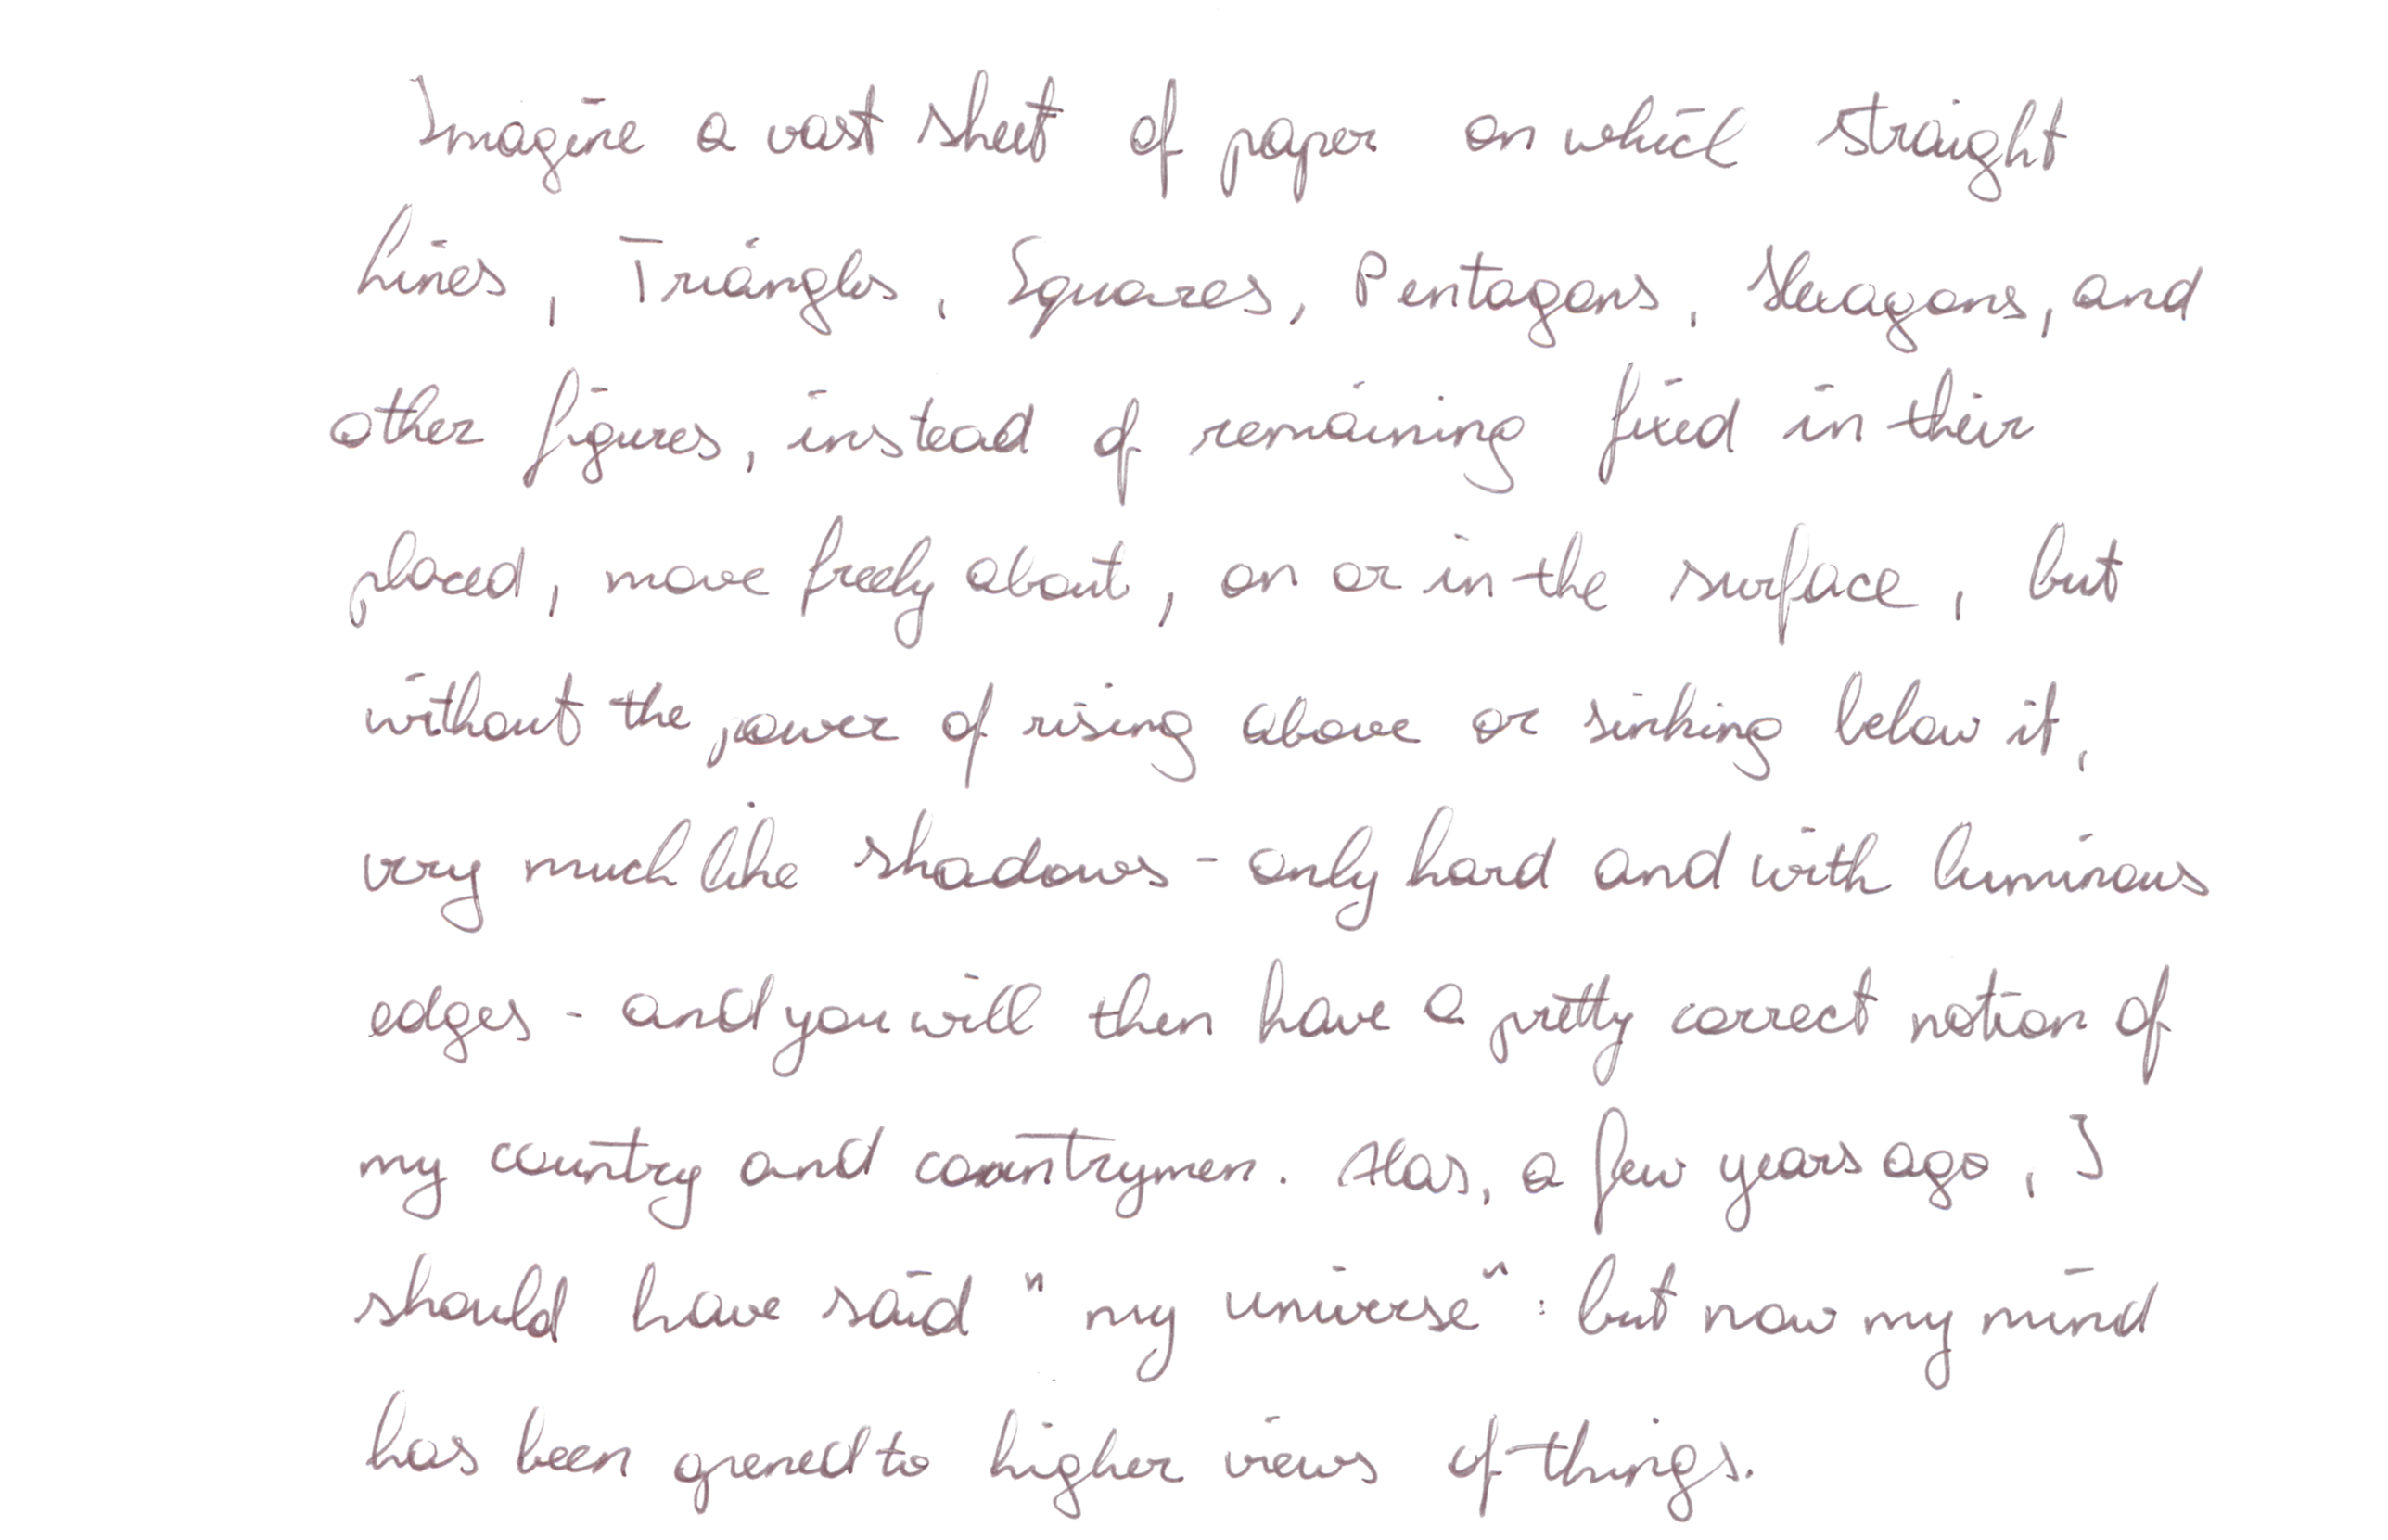 Imagine a vast sheet of paper on which straight
Lines, Triangles, Squares, Pentagons, Hexagons, and
other figures, instead of remaining fixed in their
placed, move freely about, on or in the surface, but
without the power of rising above or sinking below it,
very much like shadows - only hard and with luminous
edges - and you will then have a pretty correct notion of
my country and countrymen. Alas, a few years ago, I
should have said "my universe": but now my mind
has been opened to higher views of things.